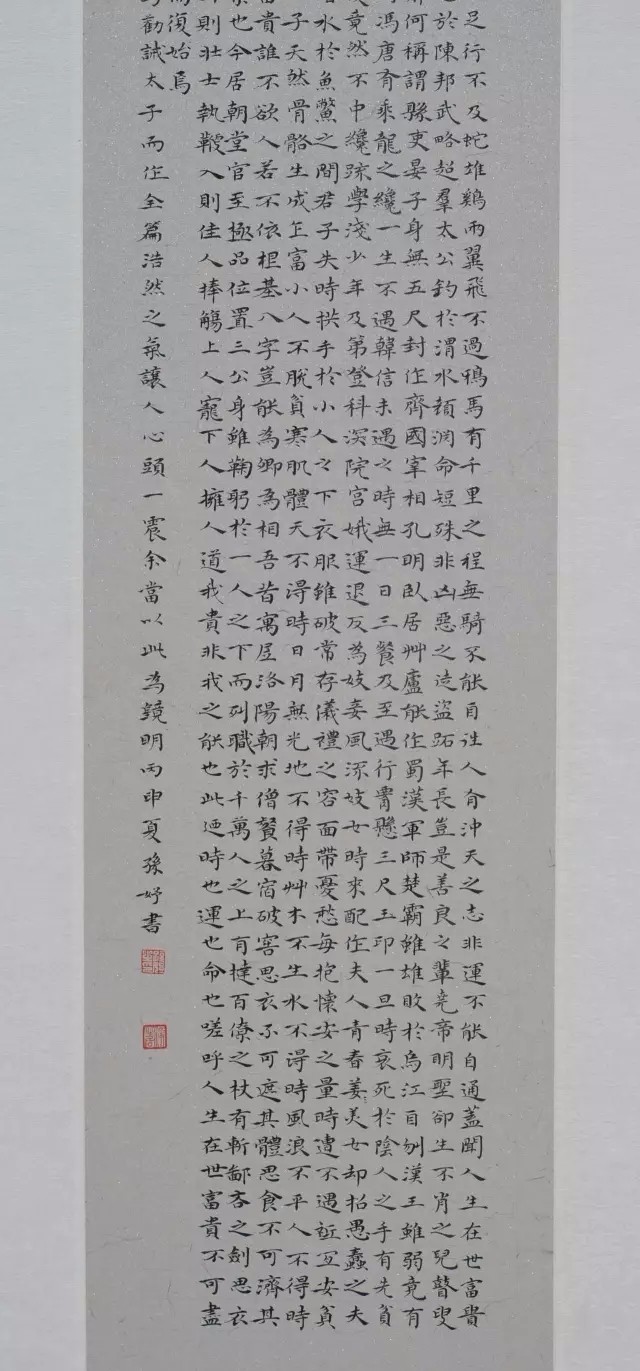 足行不及蛇雄鷄兩翼飛不過鴉馬有千里之程無騎不能自往人有沖天之志非運不能自通蓋聞人生在世富貴
於陳邦武略超羣太公釣於渭水顏淵命短殊非凶惡之徒盜跖年長豈是善良之輩堯帝明聖卻生不肖之兒瞽叟
何稱謂縣吏晏子身無五尺封作齊國宰相孔明臥居艸廬能作蜀漢軍師楚霸雖雄敗於烏江自刎漢王雖弱竟有
馮唐有乘龍之纔一生不遇韓信未遇之時無一日三餐及至遇行懸三尺玉印一旦時衰死於陰人之手有先貧
竟然不中纔疏學淺少年及第登科深院宮娥運退反為妓妾風流妓女時來配作夫人青春姜美女却招愚蠢之夫
水於魚鱉之間君子失時拱手於小人之下衣服雖破常存儀禮之容面帶憂愁每抱懷安之量時遭不遇宜安貧
子天然骨骼生成正富小人不脫貧寒肌體天不得時日月無光地不得時艸木不生水不得時風浪不平人不得時
貴誰不欲人若不依根基八字豈能為卿為相吾昔寓居洛陽朝求僧餐暮宿破窖思衣不可遮其體思食不可濟其
也今居朝堂官至極品位置三公身雖鞠躬於一人之下而列職於千萬人之上有撻百僚之杖有斬鄙吝之劍思衣
則壯士執鞭入則佳人捧觴上人寵下人擁人道我貴非我之能也此迺時也運也命也嗟呼人生在世富貴不可盡
而復始焉
勸誡太子而作全篇浩然之氣讓人心頭一震余當以此為鏡明丙申夏孫妤書